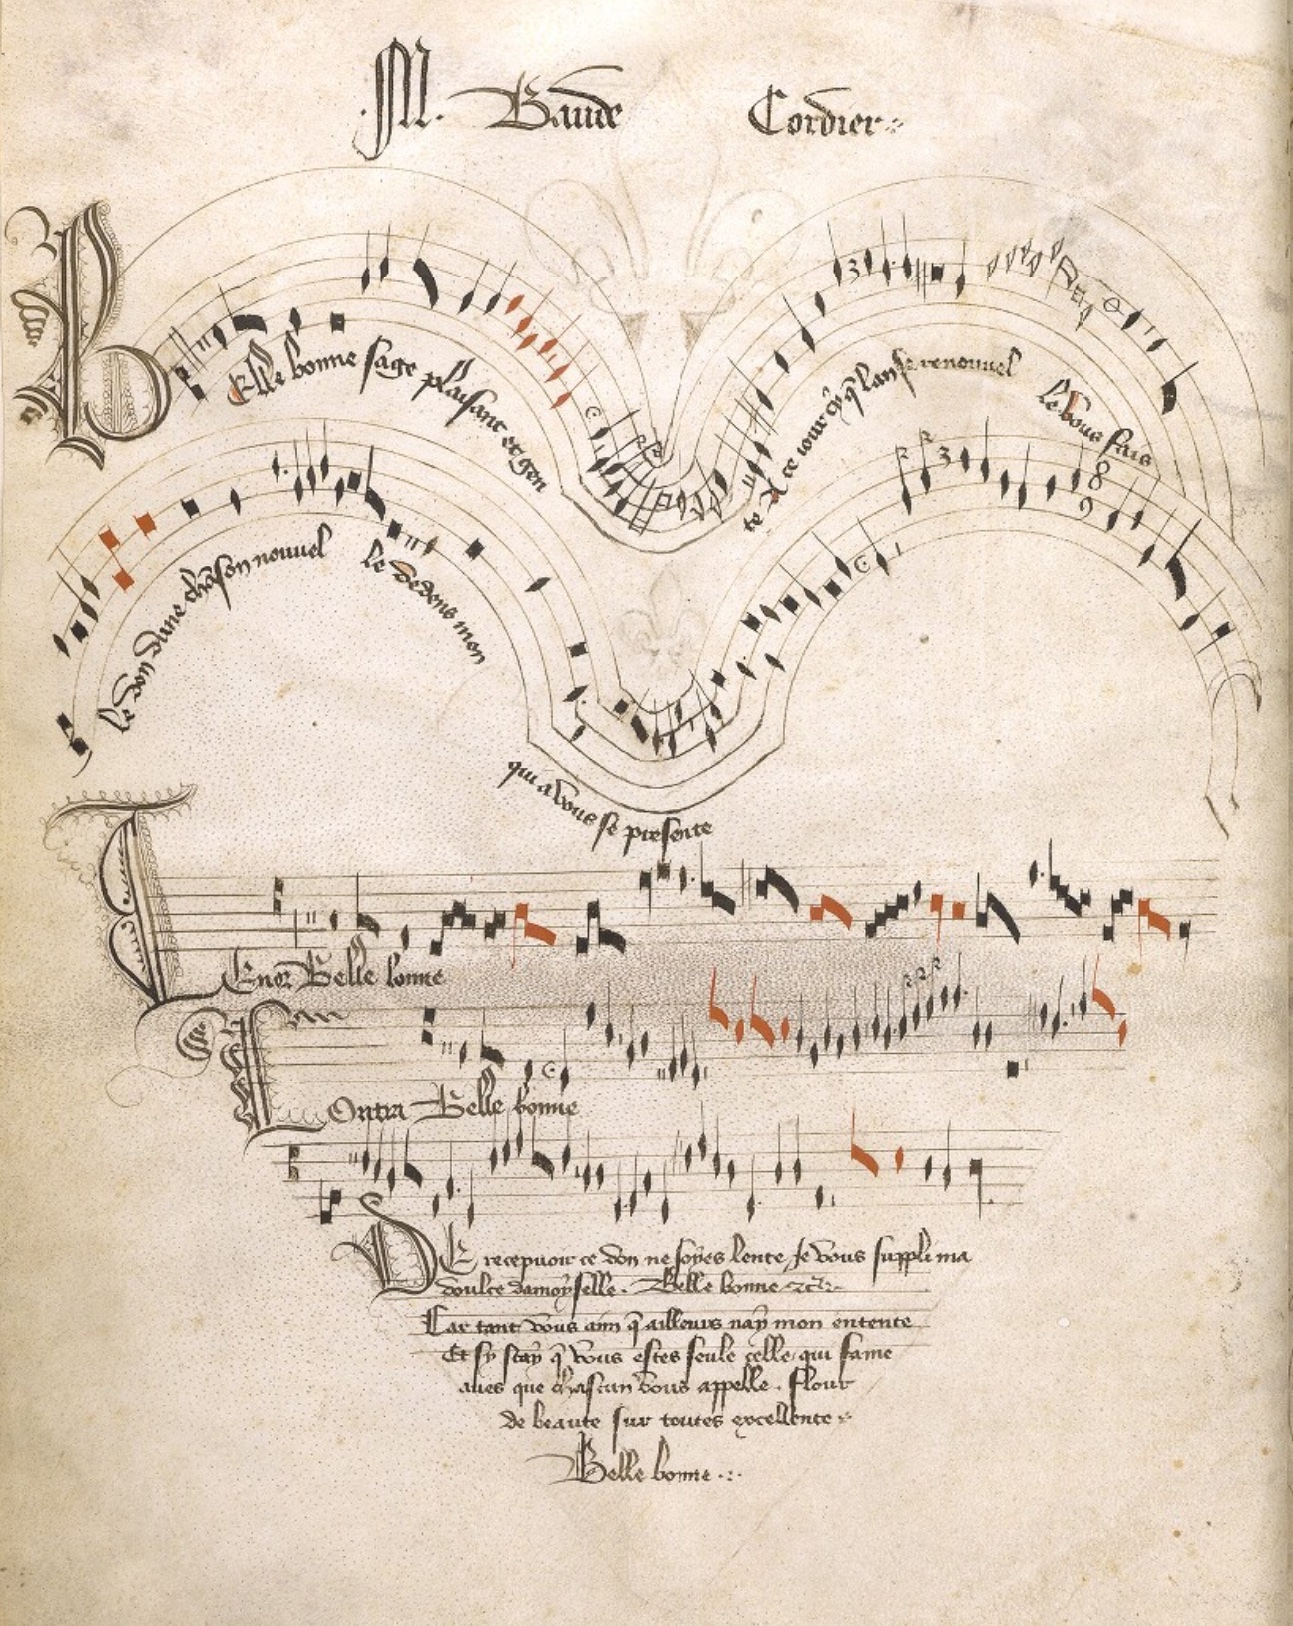 .M. Baude Cordier
Belle bonne sage plaisant et gen
te A ce iour cy q̄ lan se renouvel
le vous fais
le don dune chāson nouvel
le dedens mon
qui a vous se presente
Tenor Belle bonne
Contra Belle bonne
DE recepuoir ce don ne soyes lente Je vous suppli ma
doulce damoyselle. Belle bonne etc̄
Car tant vous aim q̄ ailleurs nay mon entente
Et sy scay q̄ vous estes seule celle qui fame
aves que chascun vous appelle. flour
de beaute sur toutes excellente
Belle bonne